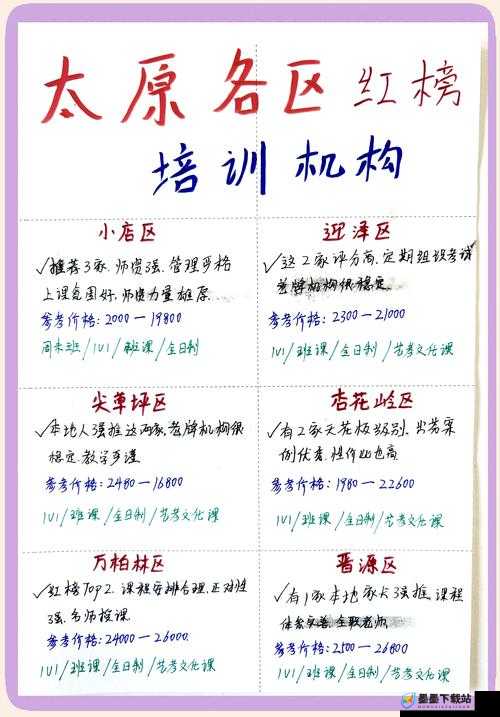 太原各区红榜
培训机构
小店区
✓推荐3家.师资强.管理严格
上课氛围好.师资力量雄厚.
参考价格:2000一19800
周末班/1V1/班课/全日制
迎泽区
✓这2家评分高.定期组织考试
老牌机构很稳定.
参考价格:2300一21000
1V1/班课/全日制/艺考文化课
尖草坪区
✓本地人强推这两家.老牌机构很
稳定.教学严谨
参考价格:2480一16800
1V1/班课/全日制/艺考文化课
杏花岭区
✓有2家天花板级别.出劳案
例优秀.性价比也高
参考价格:1980一22600
1V1/班课/全日制/艺考文化课
万柏林区
✓红榜Top2.课程安排合理.正对性
强.名师授课.
参考价格:24000一26000
1V1/班课/全日制/艺考文化课
晋源区
✓有1家本地家长强推.课程
体系完善.全职老师
参考价格:2100一26800
1V1/班课/全日制/艺考文化课
墨墨下载站